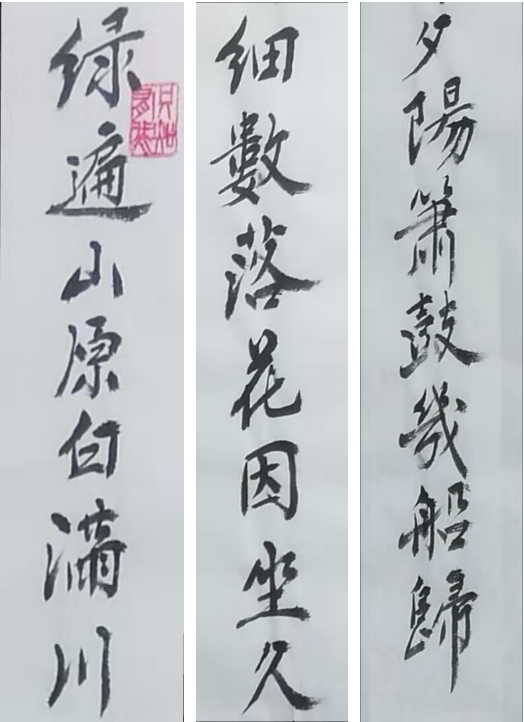 夕陽簫鼓幾船歸
细數落花因坐久
绿遍山原白滿川